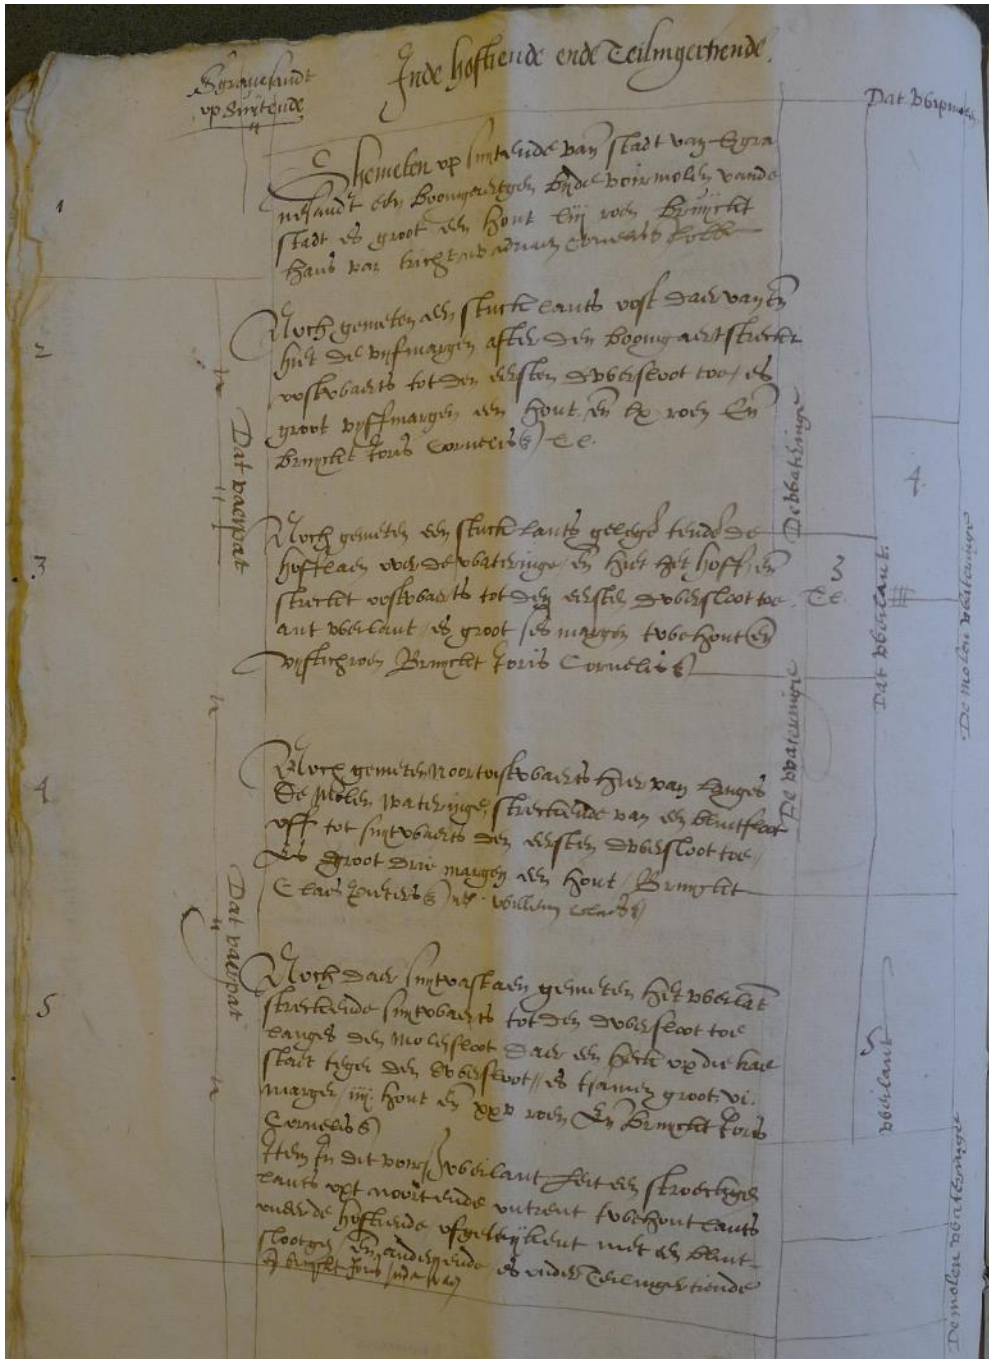 Inde hoftiende ende Teilingertiende.
Sgravesandt
op Suytende
Dat werpmolen
1
Ghemeten op suytende van stadt van Sgra
nesandt een boomgaertgen byde voirmolen vande
stadt es groot een hont liij roen Bruyckt
Hans van tricht nv adriaen Cornelis
2
Noch gemeten een stuck lants oost daer van en
hiet de vijfmargen after den boomgaert streckt
oostwaerts tot den eersten dwersloot toe / es
groot vyffmargen een hont en lx roen En
bruyckt Joris Corneliss) Ee.
Dat vaerpat
De wateringe
4.
3
Noch gemeten een stuck lants gelege tende de
hoflaen over de wateringe en hiet het hoff en
streckt oostwaerts tot den eersten dwersloot toe
ant werlant es groot ses margen twehont en
vyftich roen Bruyckt Joris Corneliss)
3
Ee.
Dat werlant.
De molen wateringe
4
Noch gemeten noortoistwaerts hier van langes
De Molen wateringe, streckende van een blintsloot
off tot suytwaerts den eersten dwersloot toe
Es groot drie margen een hont / Bruyckt
Claes pieterss) willem claess)
De wateringe
Dat vaerpat
5
Noch daer suytoast aen gemeten het werlat
streckende suytwaerts tot den dwersloot toe
langes den molensloot daer een heck op die kae
staet tegen den dwersloot // es tsamen groot vi.
margen iiij. hont en xxv roen En bruyckt Joris
Corneliss)
5
werlant
Item In dit voirs) werlant leit een stroeckgen
lants opt noortende ontrent twehont lants
onder de hoftiende ofgestyckent met een blint
slootgen / En ander ende es onder Teilingertiende
Demolen wateringe